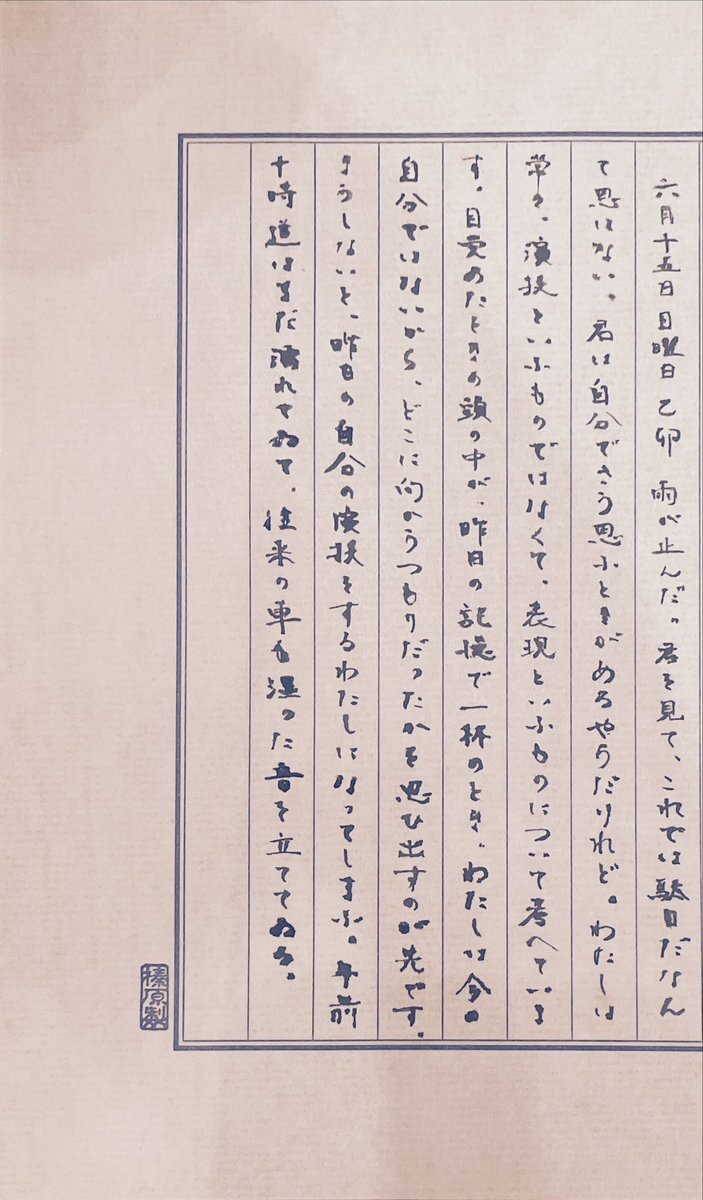 六月十五日 日曜日 乙卯 雨が止んだ。君を見て、これでは駄目だなん
て思はない。君は自分でさう思ふときがあるやうだけれど。わたしは
常々、演技といふものではなくて、表現といふものについて考へていま
す。目覚めたときの頭の中が、昨日の記憶で一杯のとき、わたしは今日
自分ではないから、どこに向かうつもりだったかを思ひ出すのが先です。
さうしないと、昨日の自分の演技をするわたしになってしまふ。午前
十時道はまだ濡れてゐて、往来の車も湿った音を立ててゐる。
榛原製